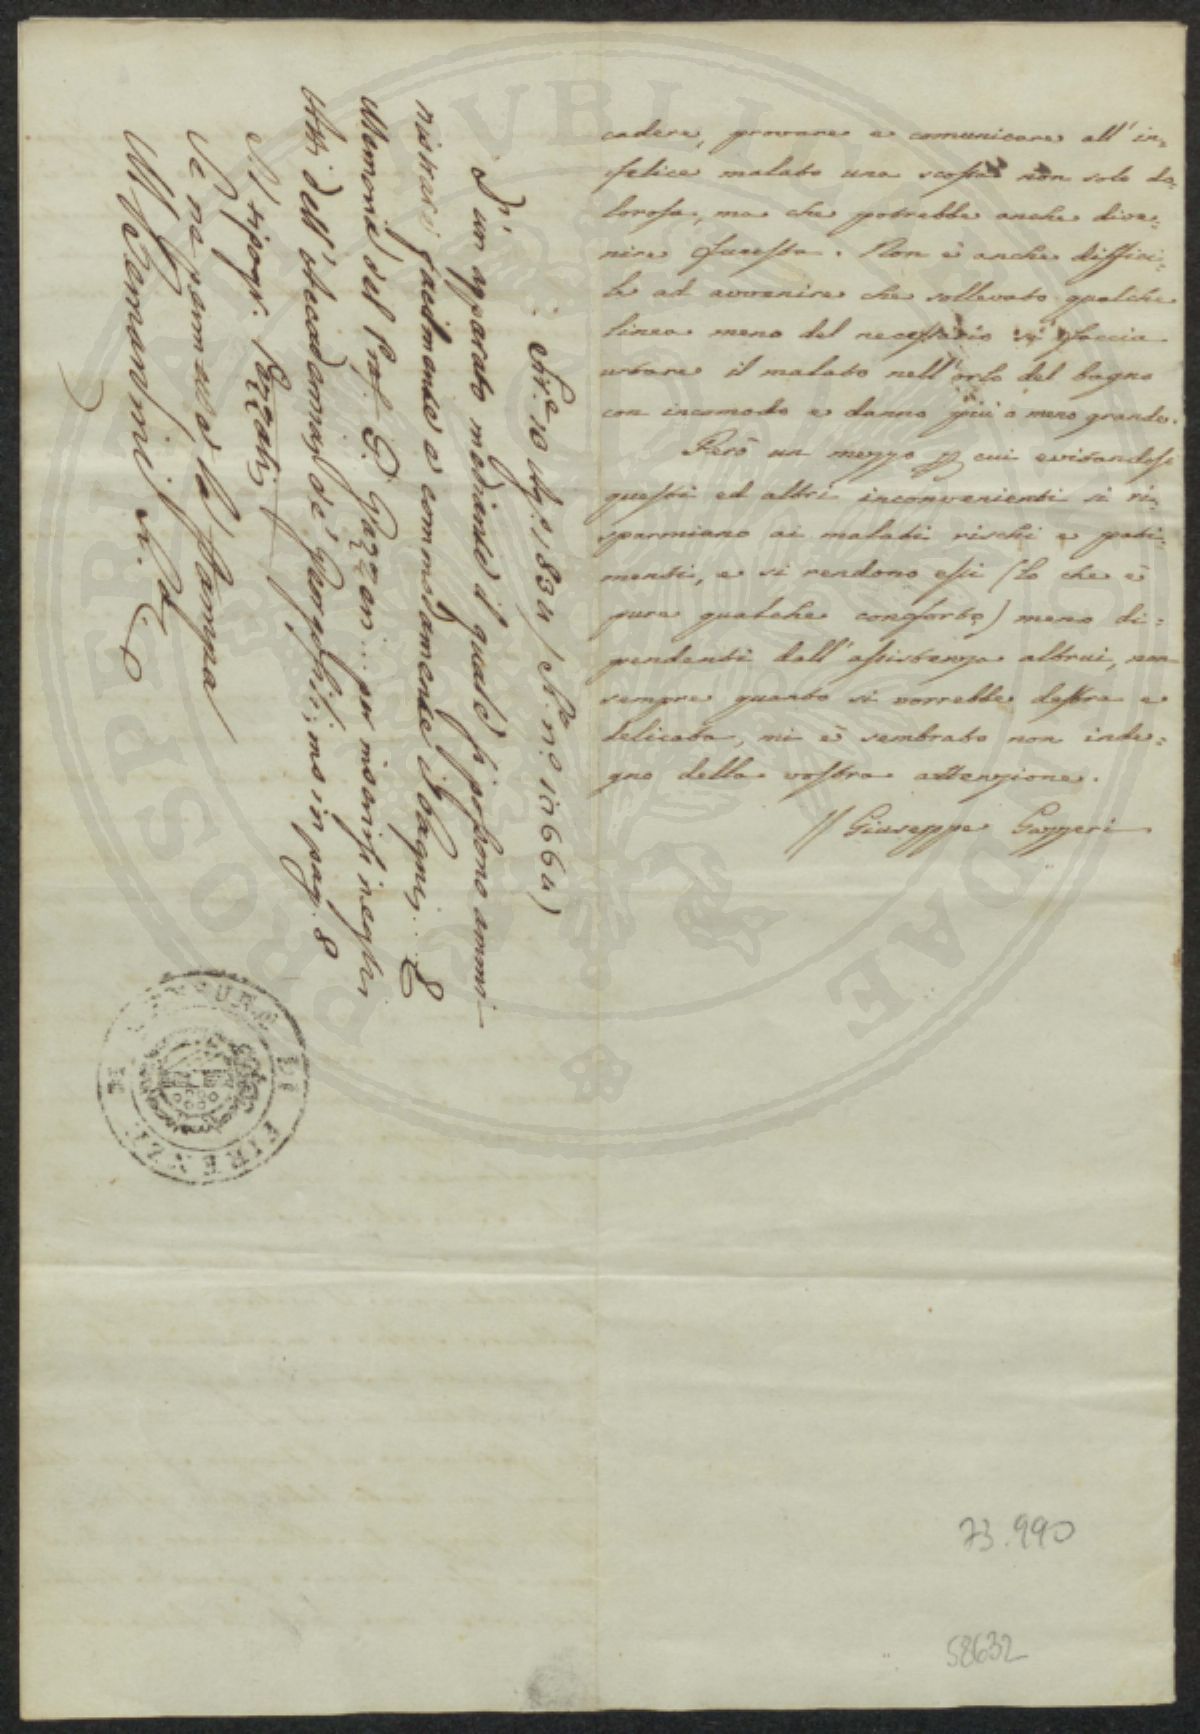 cadere, provare e comunicare all'in=
felice malato una scossa non solo do=
lorosa, ma che potrebbe anche dive=
nire funesta. Non è anche diffici=
le ad avvenire che sollevato qualche
linea meno del necessario si faccia
urtare il malato nell'orlo del bagno
con incomodo e danno più o meno grande.
Però un mezzo p cui evitandosi
questi ed altri inconvenienti si ri=
sparmiano ai malati rischi e pati=
menti, e si rendono essi (lo che è
pure qualche conforto) meno di=
pendenti dall'assistenza altrui, non
sempre quanto si vorrebbe destra e
delicata, mi è sembrato non inde=
gno della vostra attenzione.
Giuseppe Gazzeri
1834
D'un apparato mediante il quale si possono ammi-
nistrare facilmente e commodamente i bagni.
Memoria del Prof. G. Gazzeri per inserirsi negli
Atti dell'Accademia de' Georgofili; ms in pag. 8
Tipogr. Pezzati
Se ne permette la stampa
CENSORE DI FIRENZE
PROSPERITATI PUBLICAE AUGENDAE
73.990
58632